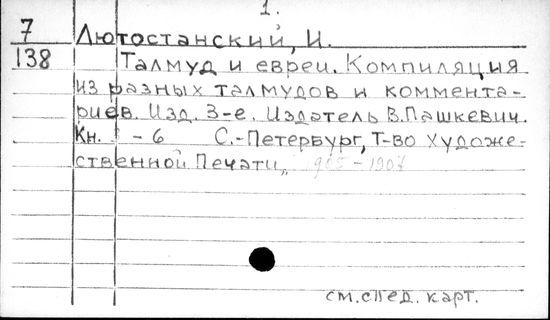 1.
7 Лютостанский, И.
138 Талмуд и евреи. Компиляция
из разных талмудов и коммента-
риев. Изд. 3-е. Издатель В. Пашкевич.
Кн. 1 - 6 С.-Петербург, Т-во Художе-
ственной Печати, 1905-1907
см. след. карт.